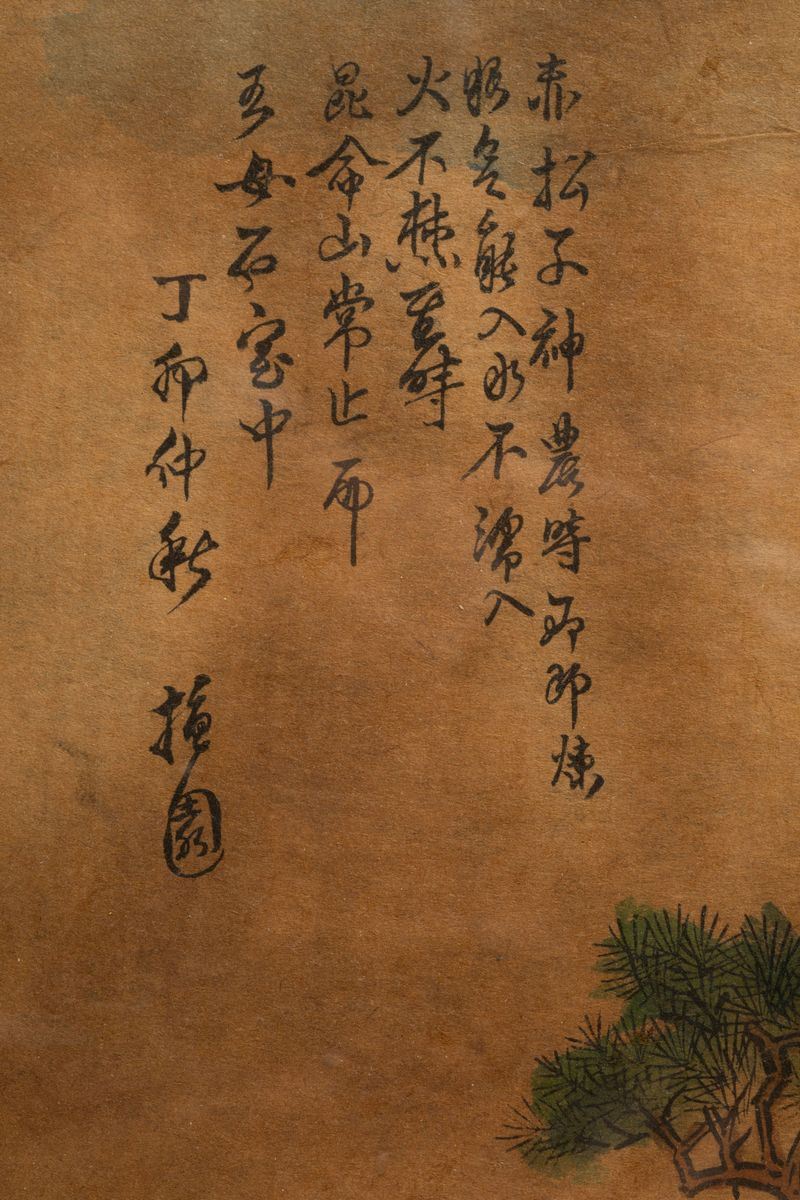 赤松子神農時雨師煉
服氣能入水不濡入
火不焚至時
昆侖山常止西
王母石室中
丁卯仲秋 檀園